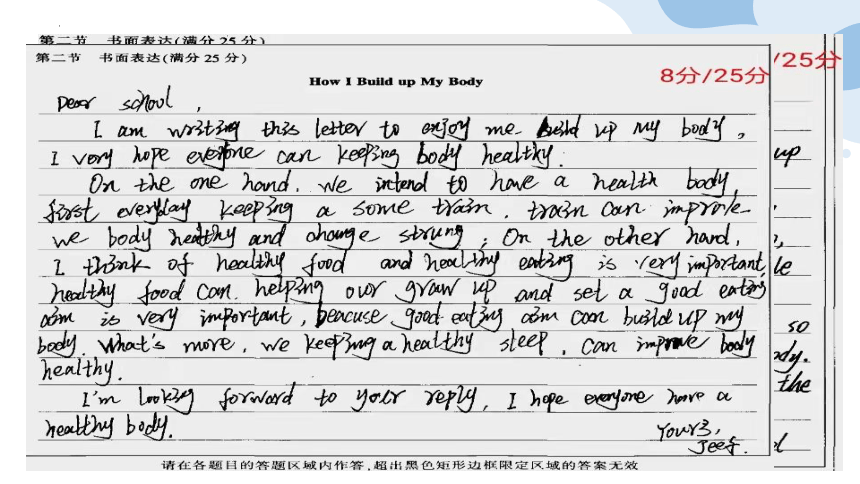 第二节 书面表达(满分 25 分)
/25分
第二节 书面表达(满分 25 分)
8分/25分
How I Build up My Body
Dear school ,
I am writing this letter to enjoy me build up my body ,
I very hope everyone can keeping body healthy.
up
On the one hand. we intend to have a health body,
first everyday keeping a some train . train can improve
we body healthy and change strung ; On the other hand ,
I think of healthy food and healthy eating is very important,
le
healthy food can. helping our graw up and set a good eating
aim is very important , beacuse good eating aim can build up my
so
body. What's more , we keeping a healthy sleep . can improve body
ody.
healthy.
the
I'm looking forward to your reply, I hope everyone have a
healthy body.
Yours,
Jeef.
请在各题目的答题区域内作答,超出黑色矩形边框限定区域的答案无效